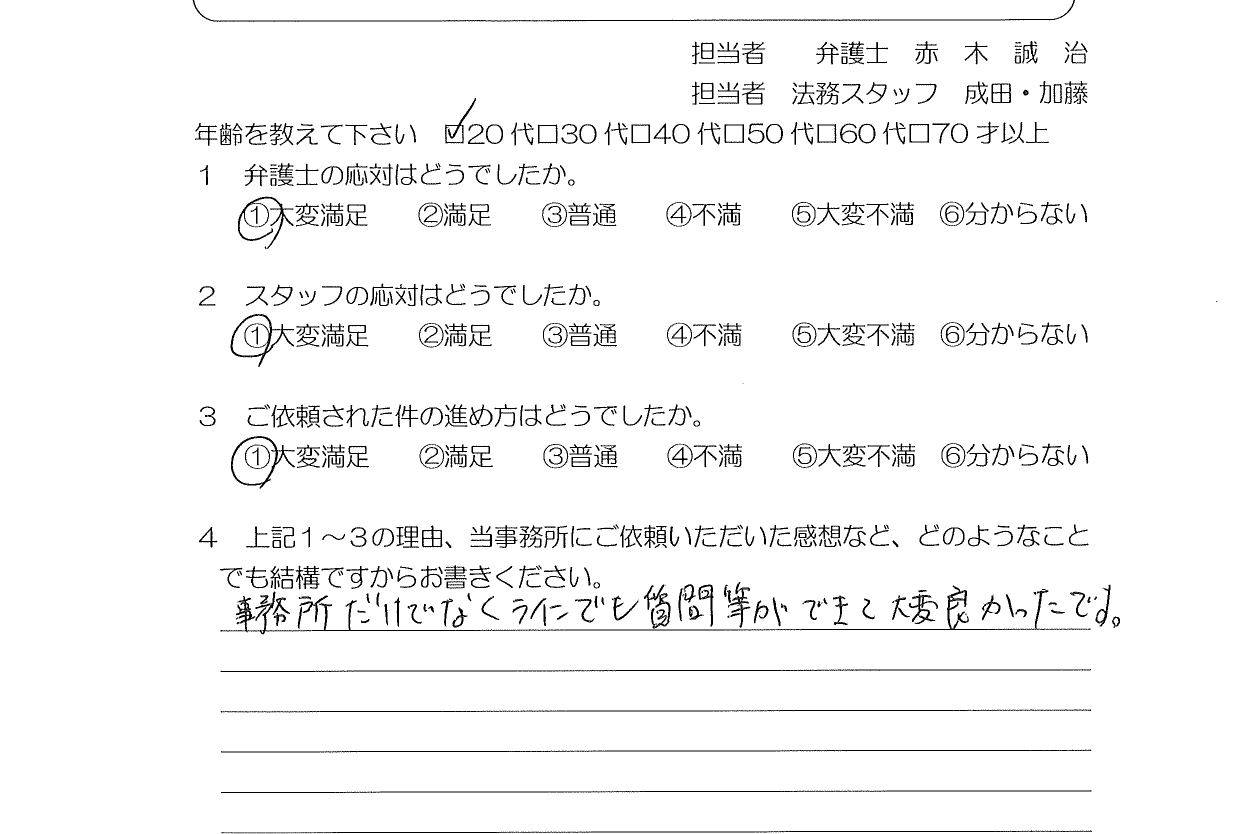 担当者　　弁護士　赤　木　誠　治
担当者　法務スタッフ　成田・加藤
年齢を教えて下さい　☑20代□30代□40代□50代□60代□70才以上
１　弁護士の応対はどうでしたか。
①大変満足　　②満足　　③普通　　④不満　　⑤大変不満　⑥分からない
２　スタッフの応対はどうでしたか。
①大変満足　　②満足　　③普通　　④不満　　⑤大変不満　⑥分からない
３　ご依頼された件の進め方はどうでしたか。
①大変満足　　②満足　　③普通　　④不満　　⑤大変不満　⑥分からない
４　上記１～３の理由、当事務所にご依頼いただいた感想など、どのようなこと
でも結構ですからお書きください。
事務所だけでなくラインでも質問等ができて大変良かったです。